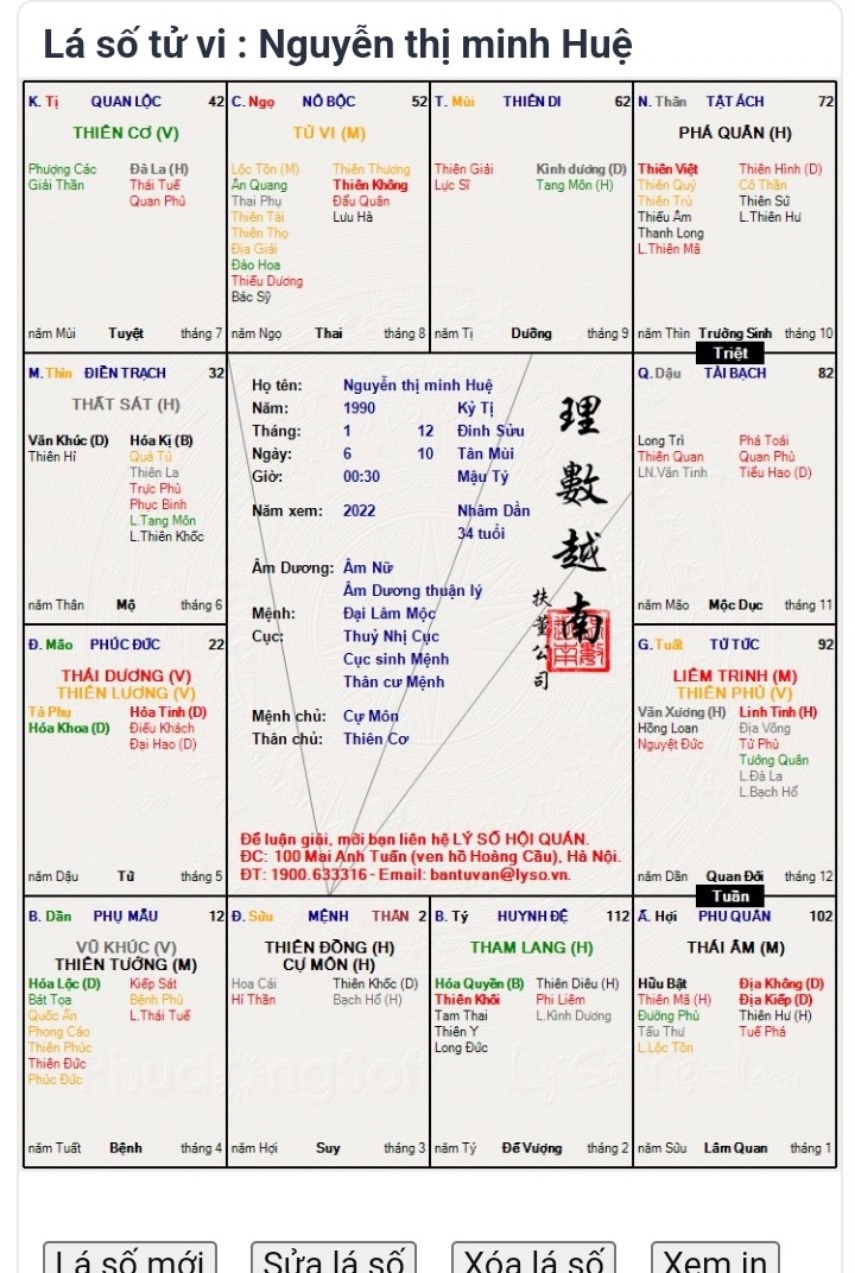 Lá số tử vi : Nguyễn thị minh Huệ
K. Tị QUAN LỘC 42
THIÊN CƠ (V)
Phượng Các Đà La (H)
Giải Thần Thái Tuế
Quan Phủ
năm Mùi Tuyệt tháng 7
C. Ngọ NÔ BỘC 52
TỬ VI (M)
Lộc Tồn (M) Thiên Thương
Ân Quang Thiên Không
Thai Phụ Đẩu Quân
Thiên Tài Lưu Hà
Thiên Thọ
Địa Giải
Đào Hoa
Thiếu Dương
Bác Sỹ
năm Ngọ Thai tháng 8
T. Mùi THIÊN DI 62
Thiên Giải Kình dương (D)
Lực Sĩ Tang Môn (H)
năm Tị Dưỡng tháng 9
N. Thân TẬT ÁCH 72
PHÁ QUÂN (H)
Thiên Việt Thiên Hình (D)
Thiên Quý Cô Thần
Thiên Trù Thiên Sứ
Thiếu Âm L.Thiên Hư
Thanh Long
L.Thiên Mã
năm Thìn Trường Sinh tháng 10
Triệt
M. Thìn ĐIỀN TRẠCH 32
THẤT SÁT (H)
Văn Khúc (D) Hóa Kị (B)
Thiên Hỉ Quả Tú
Thiên La
Trực Phù
Phục Binh
L.Tang Môn
L.Thiên Khốc
năm Thân Mộ tháng 6
Họ tên: Nguyễn thị minh Huệ
Năm: 1990 Kỷ Tị
Tháng: 1 12 Đinh Sửu
Ngày: 6 10 Tân Mùi
Giờ: 00:30 Mậu Tý
Năm xem: 2022 Nhâm Dần
34 tuổi
Âm Dương: Âm Nữ
Âm Dương thuận lý
Mệnh: Đại Lâm Mộc
Cục: Thuỷ Nhị Cục
Cục sinh Mệnh
Thân cư Mệnh
Mệnh chủ: Cự Môn
Thân chủ: Thiên Cơ
理數越南
扶董公司
Để luận giải, mời bạn liên hệ LÝ SỐ HỘI QUÁN.
ĐC: 100 Mai Anh Tuấn (ven hồ Hoàng Cầu), Hà Nội.
ĐT: 1900.633316 - Email: bantuvan@lyso.vn.
Q. Dậu TÀI BẠCH 82
Long Trì Phá Toái
Thiên Quan Quan Phù
LN.Văn Tinh Tiểu Hao (D)
năm Mão Mộc Dục tháng 11
Đ. Mão PHÚC ĐỨC 22
THÁI DƯƠNG (V)
THIÊN LƯƠNG (V)
Tả Phụ Hỏa Tinh (D)
Hóa Khoa (D) Điếu Khách
Đại Hao (D)
năm Dậu Tử tháng 5
G. Tuất TỬ TỨC 92
LIÊM TRINH (M)
THIÊN PHỦ (V)
Văn Xương (H) Linh Tinh (H)
Hồng Loan Địa Võng
Nguyệt Đức Tử Phù
Tướng Quân
L.Đà La
L.Bạch Hổ
năm Dần Quan Đới tháng 12
Tuần
B. Dần PHỤ MẪU 12
VŨ KHÚC (V)
THIÊN TƯỚNG (M)
Hóa Lộc (D) Kiếp Sát
Bát Tọa Bệnh Phù
Quốc Ấn L.Thái Tuế
Phong Cáo
Thiên Phúc
Thiên Đức
Phúc Đức
năm Tuất Bệnh tháng 4
Đ. Sửu MỆNH THÂN 2
THIÊN ĐỒNG (H)
CỰ MÔN (H)
Hoa Cái Thiên Khốc (D)
Hỉ Thần Bạch Hổ (H)
năm Hợi Suy tháng 3
B. Tý HUYNH ĐỆ 112
THAM LANG (H)
Hóa Quyền (B) Thiên Diêu (H)
Thiên Khôi Phi Liêm
Tam Thai L.Kình Dương
Thiên Y
Long Đức
năm Tý Đế Vượng tháng 2
Ấ. Hợi PHU QUÂN 102
THÁI ÂM (M)
Hữu Bật Địa Không (D)
Thiên Mã (H) Địa Kiếp (D)
Đường Phù Thiên Hư (H)
Tấu Thư Tuế Phá
L.Lộc Tồn
năm Sửu Lâm Quan tháng 1
PhuđổngSof
Lá số mới Sửa lá số Xóa lá số Xem in